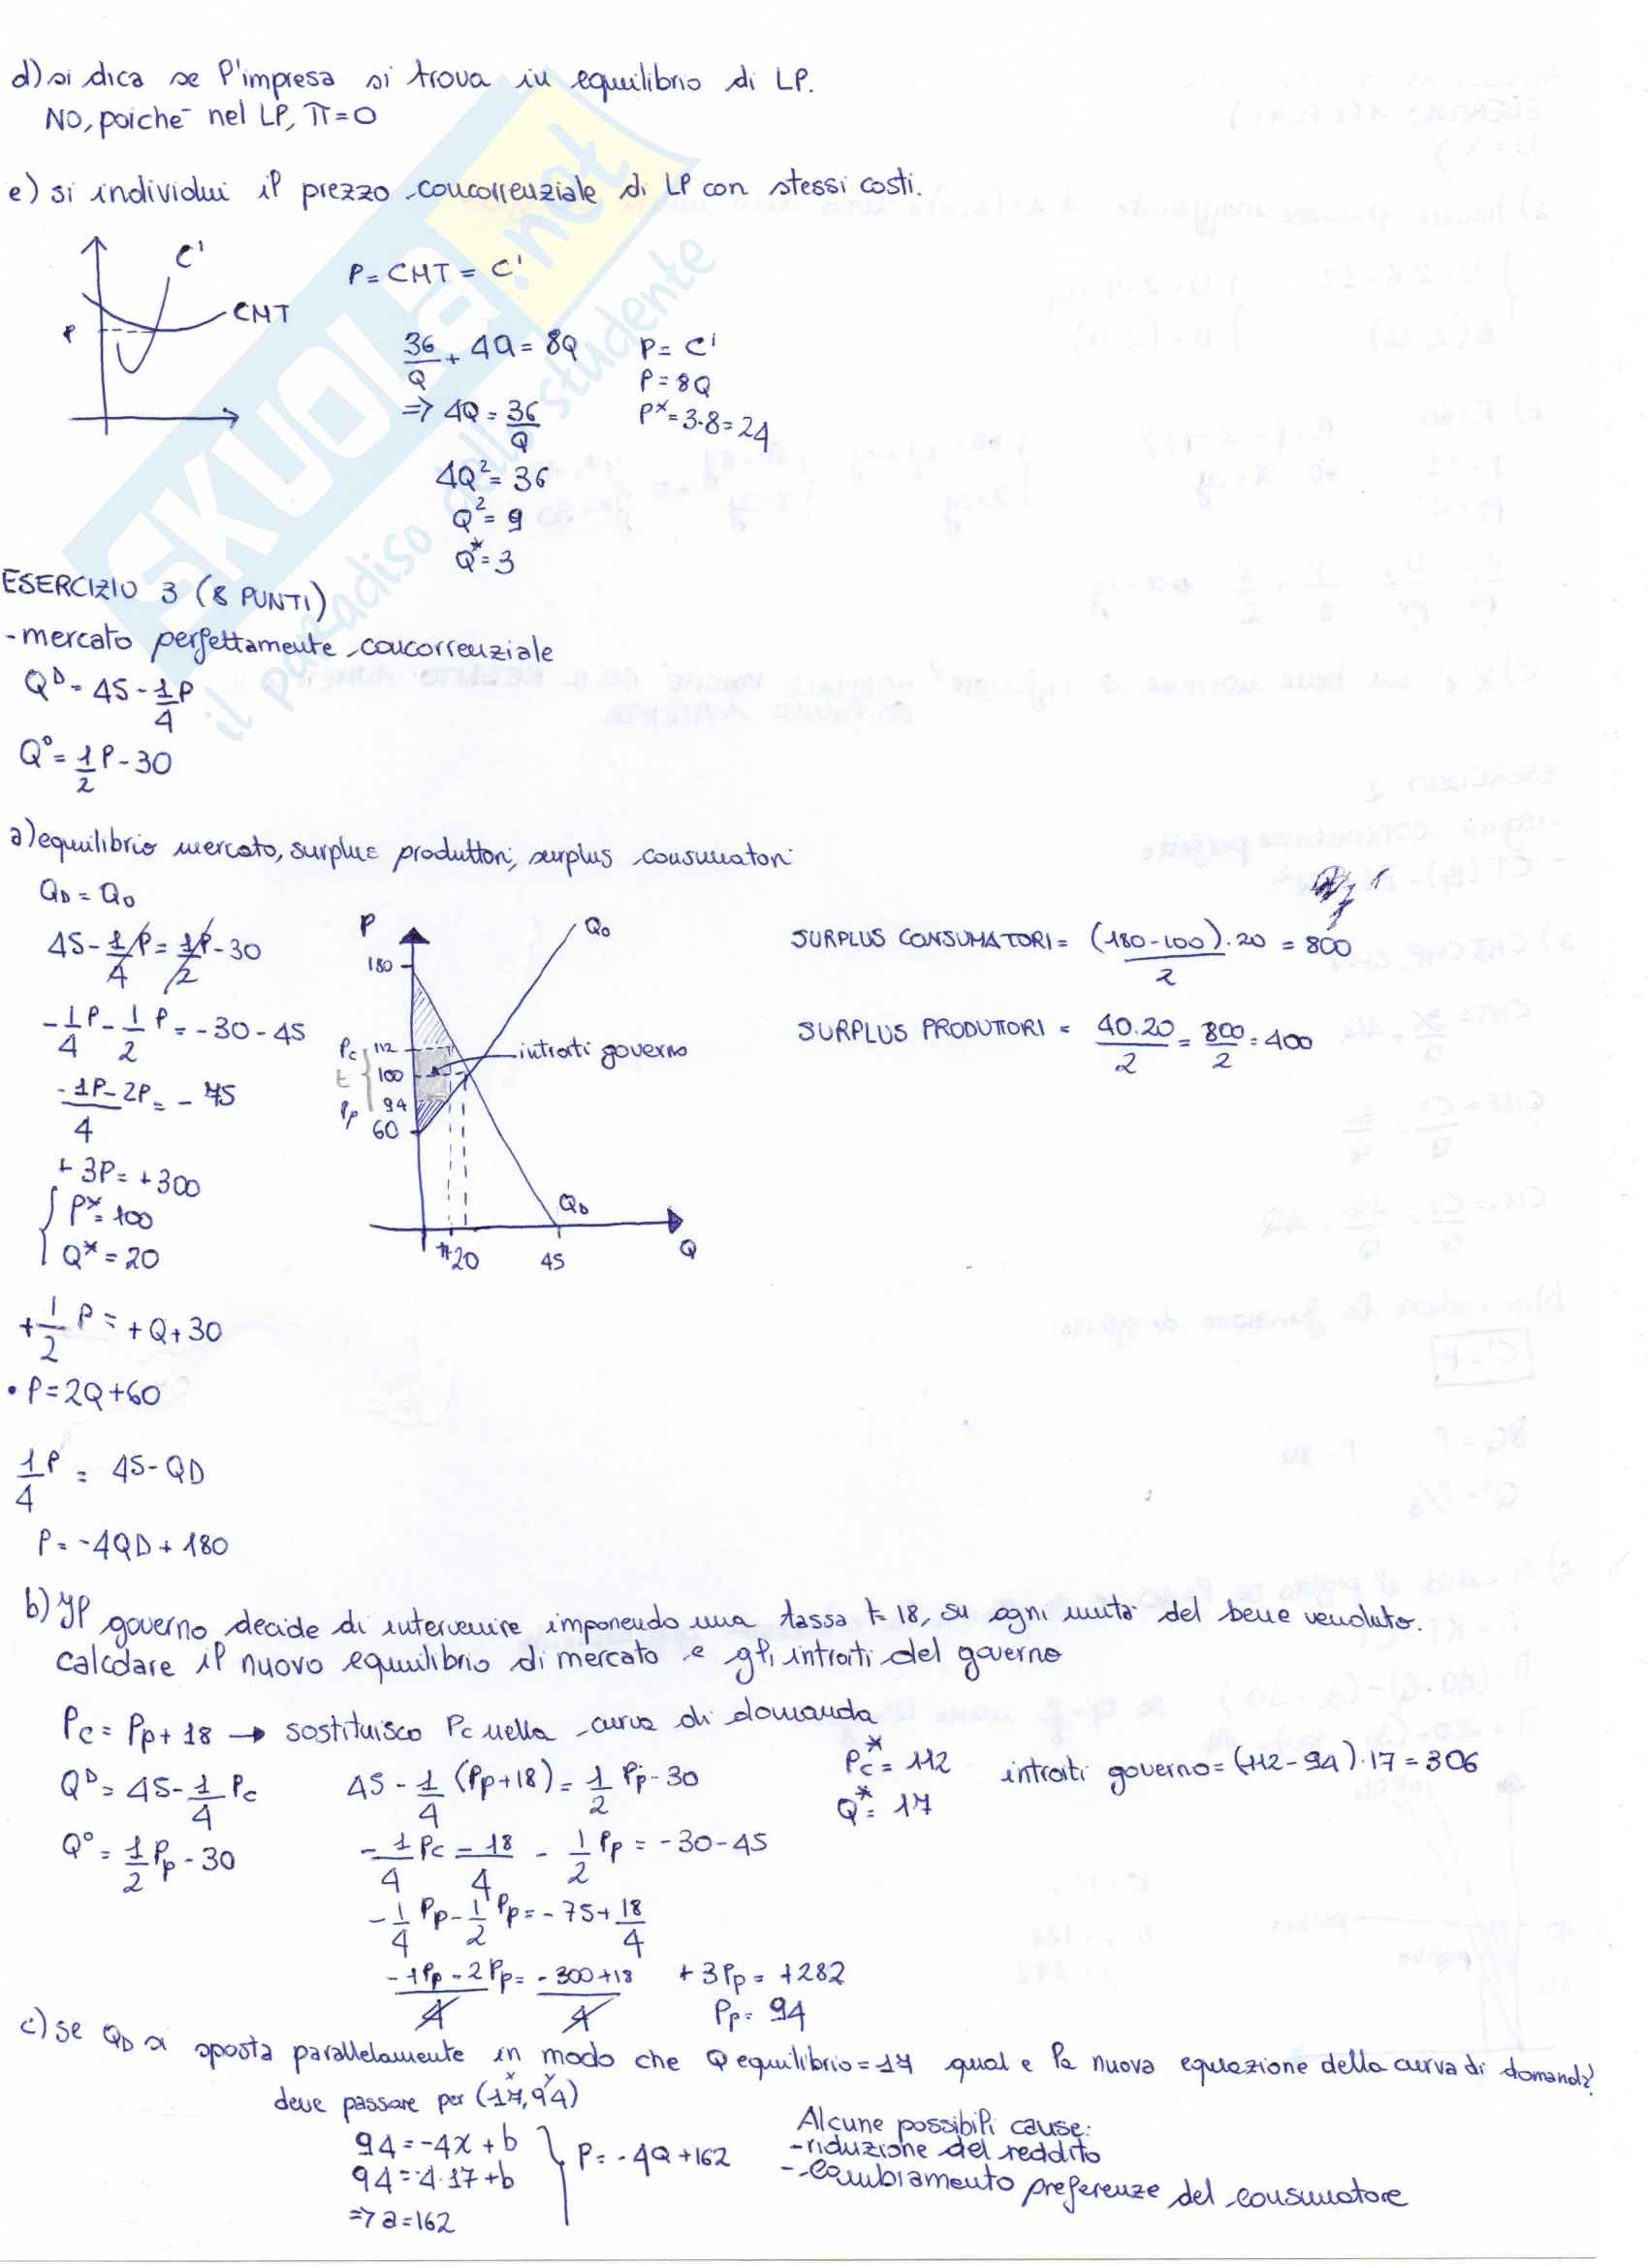 d) si dica se l'impresa si trova in equilibrio di LP.
NO, poiché nel LP, π=0
e) si individui il prezzo concorrenziale di LP con stessi costi.
C'
CMT
P
P = CMT = C'
36/Q + 4Q = 8Q
⇒ 4Q = 36/Q
4Q² = 36
Q² = 9
Q* = 3
P = C'
P = 8Q
P* = 3·8 = 24
SKUOLA.net
il paradiso dello studente
ESERCIZIO 3 (8 PUNTI)
- mercato perfettamente concorrenziale
Q^D = 45 - 1/4 P
Q^O = 1/2 P - 30
a) equilibrio mercato, surplus produttori, surplus consumatori
QD = QO
45 - 1/4 P = 1/2 P - 30
- 1/4 P - 1/2 P = -30 - 45
-1P - 2P / 4 = -75
+3P = +300
P* = 100
Q* = 20
P
180
Pc 112
t
100
Pp 94
60
QO
intraiti governo
QD
17 20
45
Q
SURPLUS CONSUMATORI = (180-100)·20 / 2 = 800
SURPLUS PRODUTTORI = 40·20 / 2 = 800/2 = 400
+ 1/2 P = +Q + 30
• P = 2Q + 60
1/4 P = 45 - QD
P = -4QD + 180
b) Il governo decide di intervenire imponendo una tassa t=18, su ogni unità del bene venduto.
calcolare il nuovo equilibrio di mercato e gli introiti del governo
Pc = Pp + 18 → sostituisco Pc nella curva di domanda
Q^D = 45 - 1/4 Pc
Q^O = 1/2 Pp - 30
45 - 1/4 (Pp+18) = 1/2 Pp - 30
- 1/4 Pc - 18/4 - 1/2 Pp = -30 - 45
- 1/4 Pp - 1/2 Pp = -75 + 18/4
-1Pp - 2Pp / 4 = -300+18 / 4
+3Pp = +282
Pp = 94
Pc* = 112
Q* = 17
introiti governo = (112-94)·17 = 306
c) se QD si sposta parallelamente in modo che Q equilibrio = 17 qual e la nuova equazione della curva di domanda?
deve passare per (17, 94)
x y
94 = -4x + b
94 = -4·17 + b
⇒ a = 162
P = -4Q + 162
Alcune possibili cause:
- riduzione del reddito
- cambiamento preferenze del consumatore